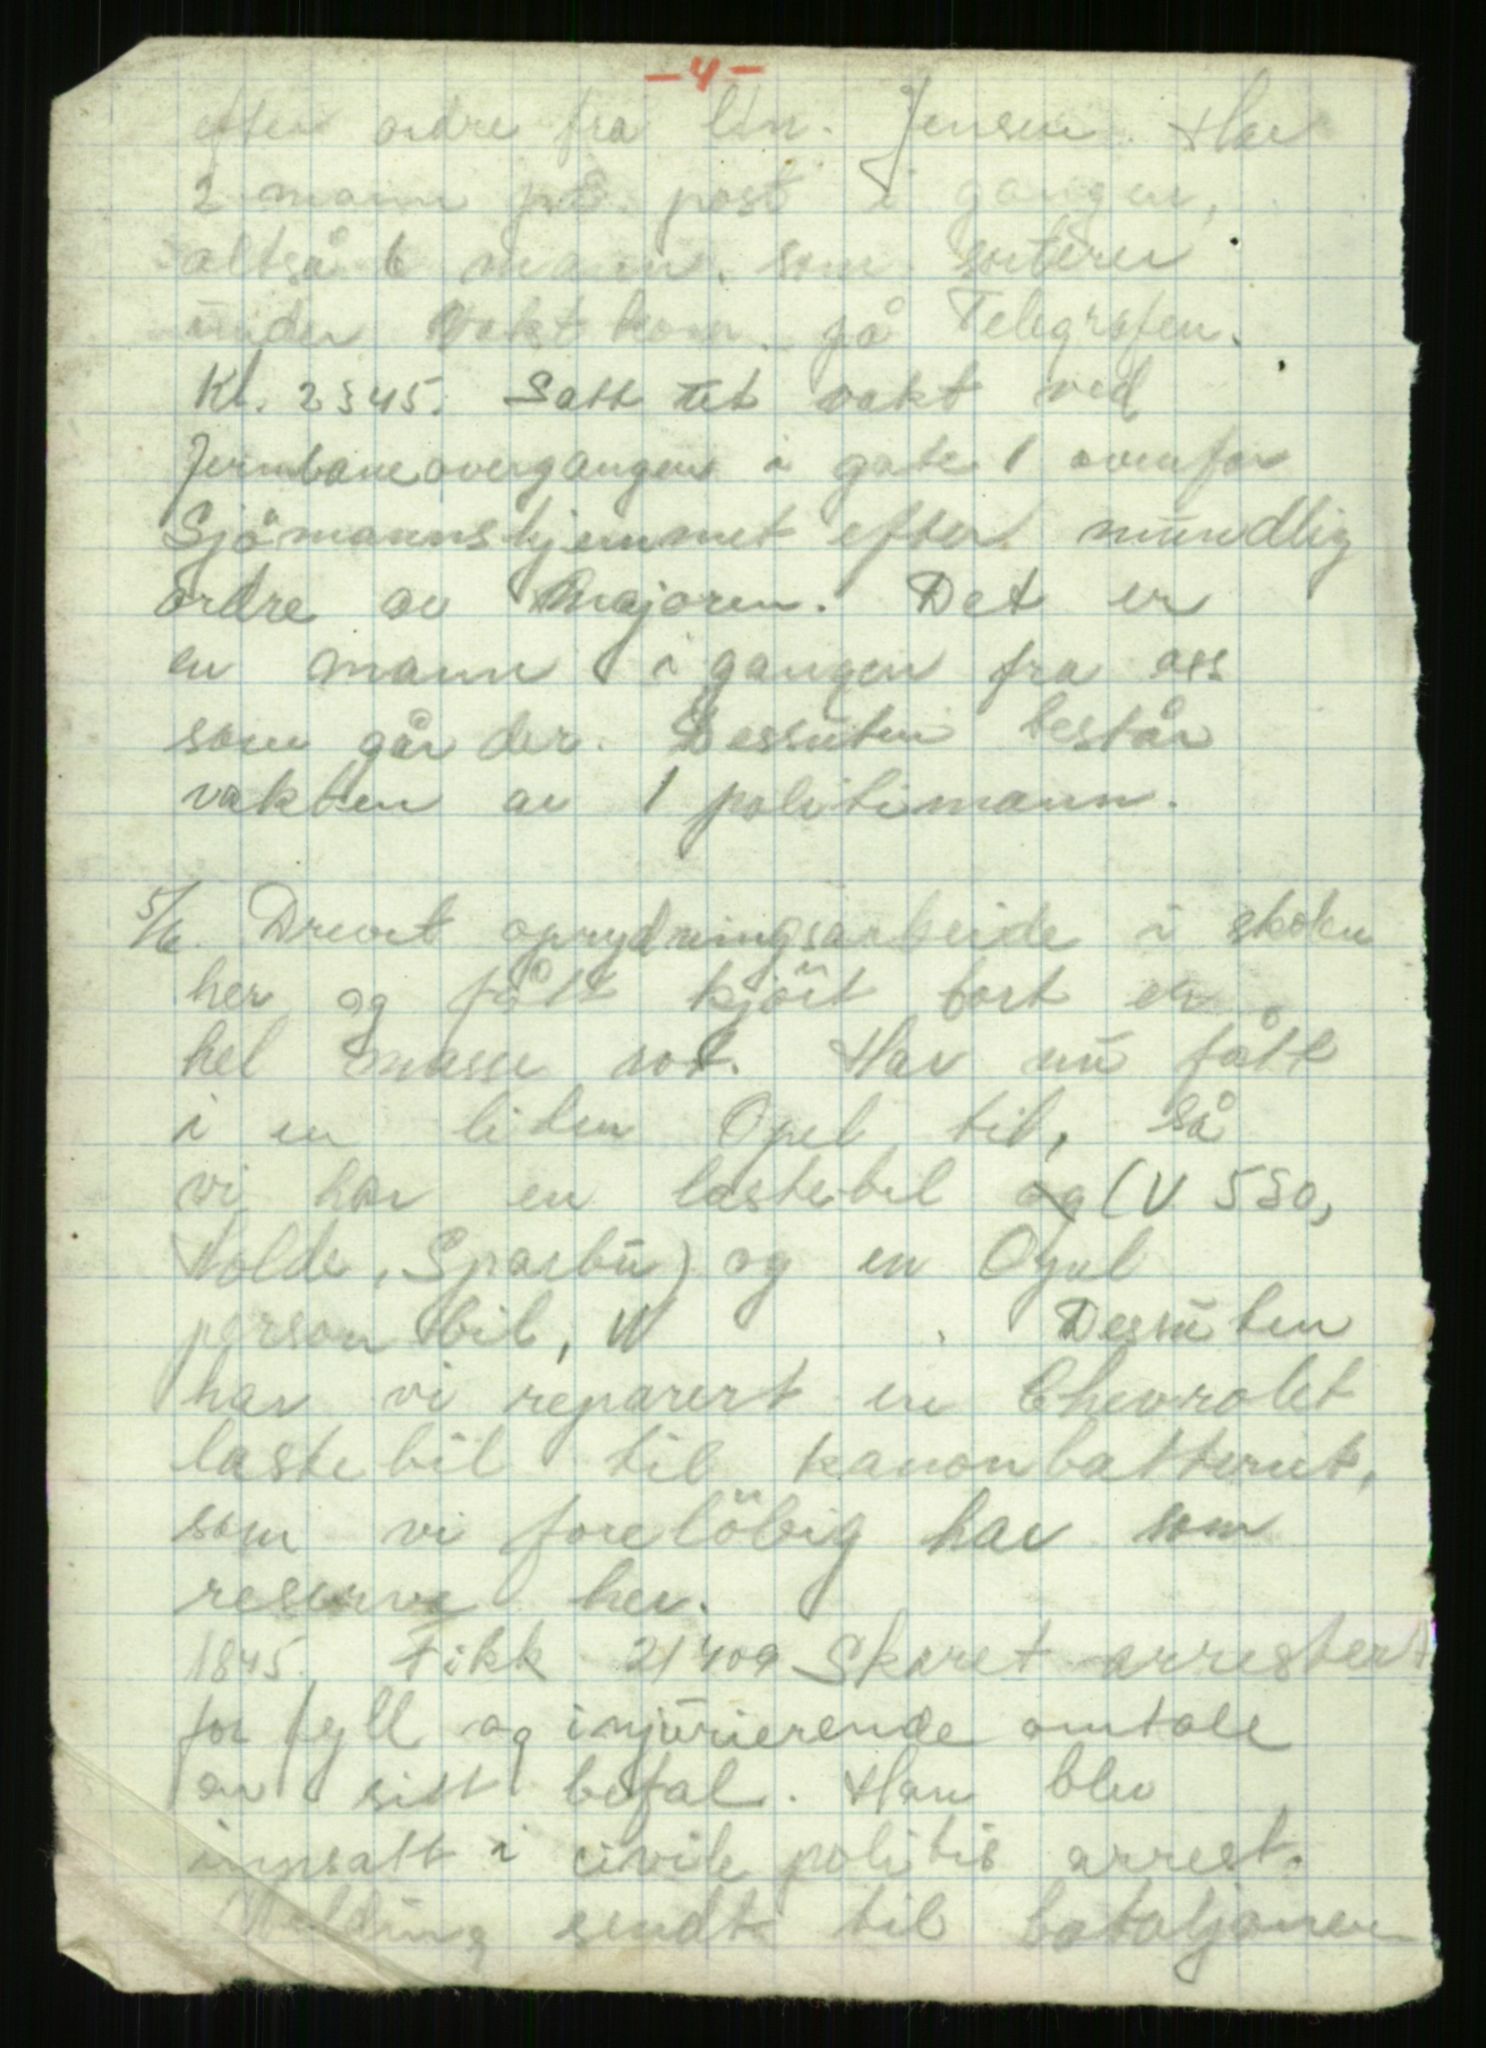 - 4 -
efter ordre fra ltn. Jensen. Har
2 mann på post i gangen,
altså 6 mann. som sorterer
under Vaktkom. på Telegrafen.
Kl. 2345. Satt ut vakt ved
Jernbaneovergangen i gate 1 ovenfor
Sjömannshjemmet efter mundlig
ordre av Majoren. Det er
en mann i gangen fra oss
som går der. Dessuten består
vakten av 1 politimann.
5/6. Drevet oprydningsarbeide i skolen
her og fått kjört bort en
hel masse rot. Har nu fått
i en liten Opel til, så
vi har en lastebil og (V 550,
Holde, Sparbu) og en Opel
personbil, W . Dessuten
har vi reparert en Chevrolet
lastebil til kanonbatteriet,
som vi forelöbig har som
reserve her.
1845. Fikk 21409 Skaret arrestert
for fyll og injurierende omtale
av sitt befal. Han blev
innsatt i civile politis arrest.
Melding sendt til bataljonen